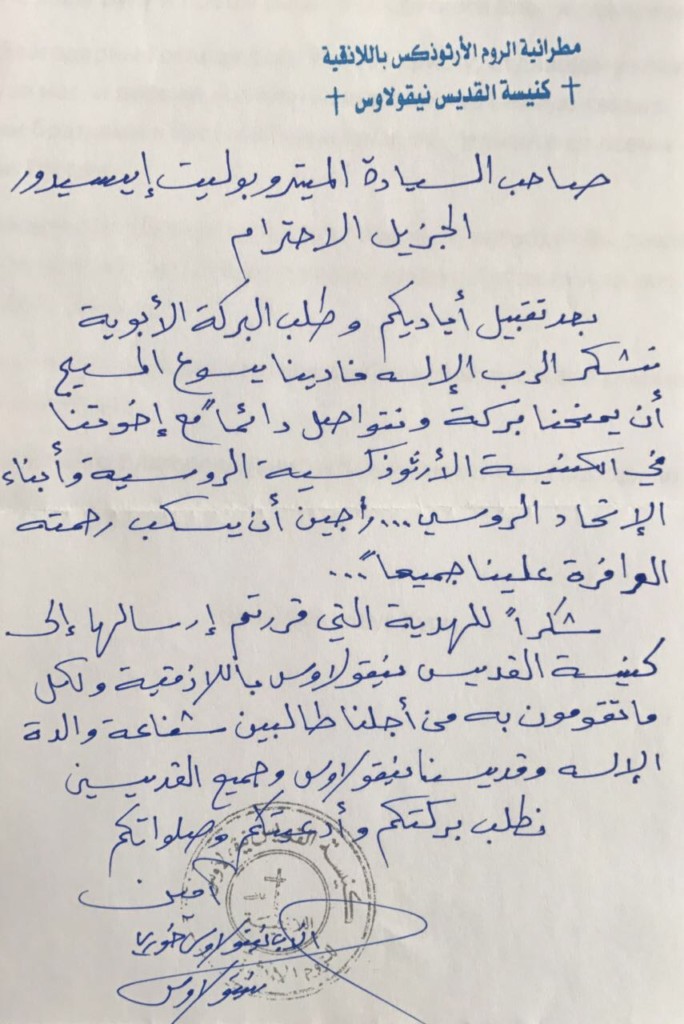 مطرانية الروم الأرثوذكس باللاذقية
† كنيسة القديس نيقولاوس †
صاحب السيادة الميتروبوليت إيسيدور
الجزيل الاحترام
بعد تقبيل أياديكم وطلب البركة الأبوية
نتشكر الرب الإله فادينا يسوع المسيح
أن يمنحنا بركة ونتواصل دائماً مع إخوتنا
في الكنيسة الأرثوذكسية الروسية وأبناء
الإتحاد الروسي... راجين أن يسكب رحمته
الوافرة علينا جميعاً...
شكراً للهدية التي قررتم إرسالها إلى
كنيسة القديس نيقولاوس باللاذقية ولكل
ما تقومون به من أجلنا طالبين شفاعة والدة
الإله وقديسنا نيقولاوس وجميع القديسين
نطلب بركتكم وأدعيتكم وصلواتكم
آمين
الأب نيقولاوس خوري